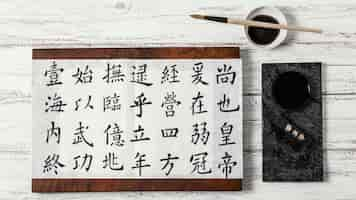 尚也皇帝
爰在弱冠
經營四方
逯乎立年
撫臨億兆
始以武功
壹海内終